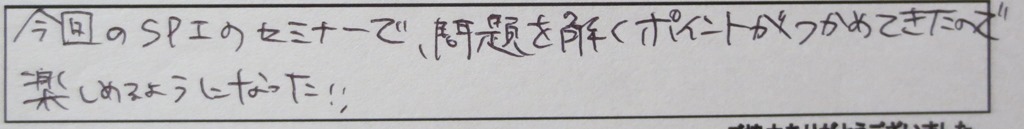 今回のSPIのセミナーで、問題を解くポイントがつかめてきたので
楽しめるようになった!!
ございました